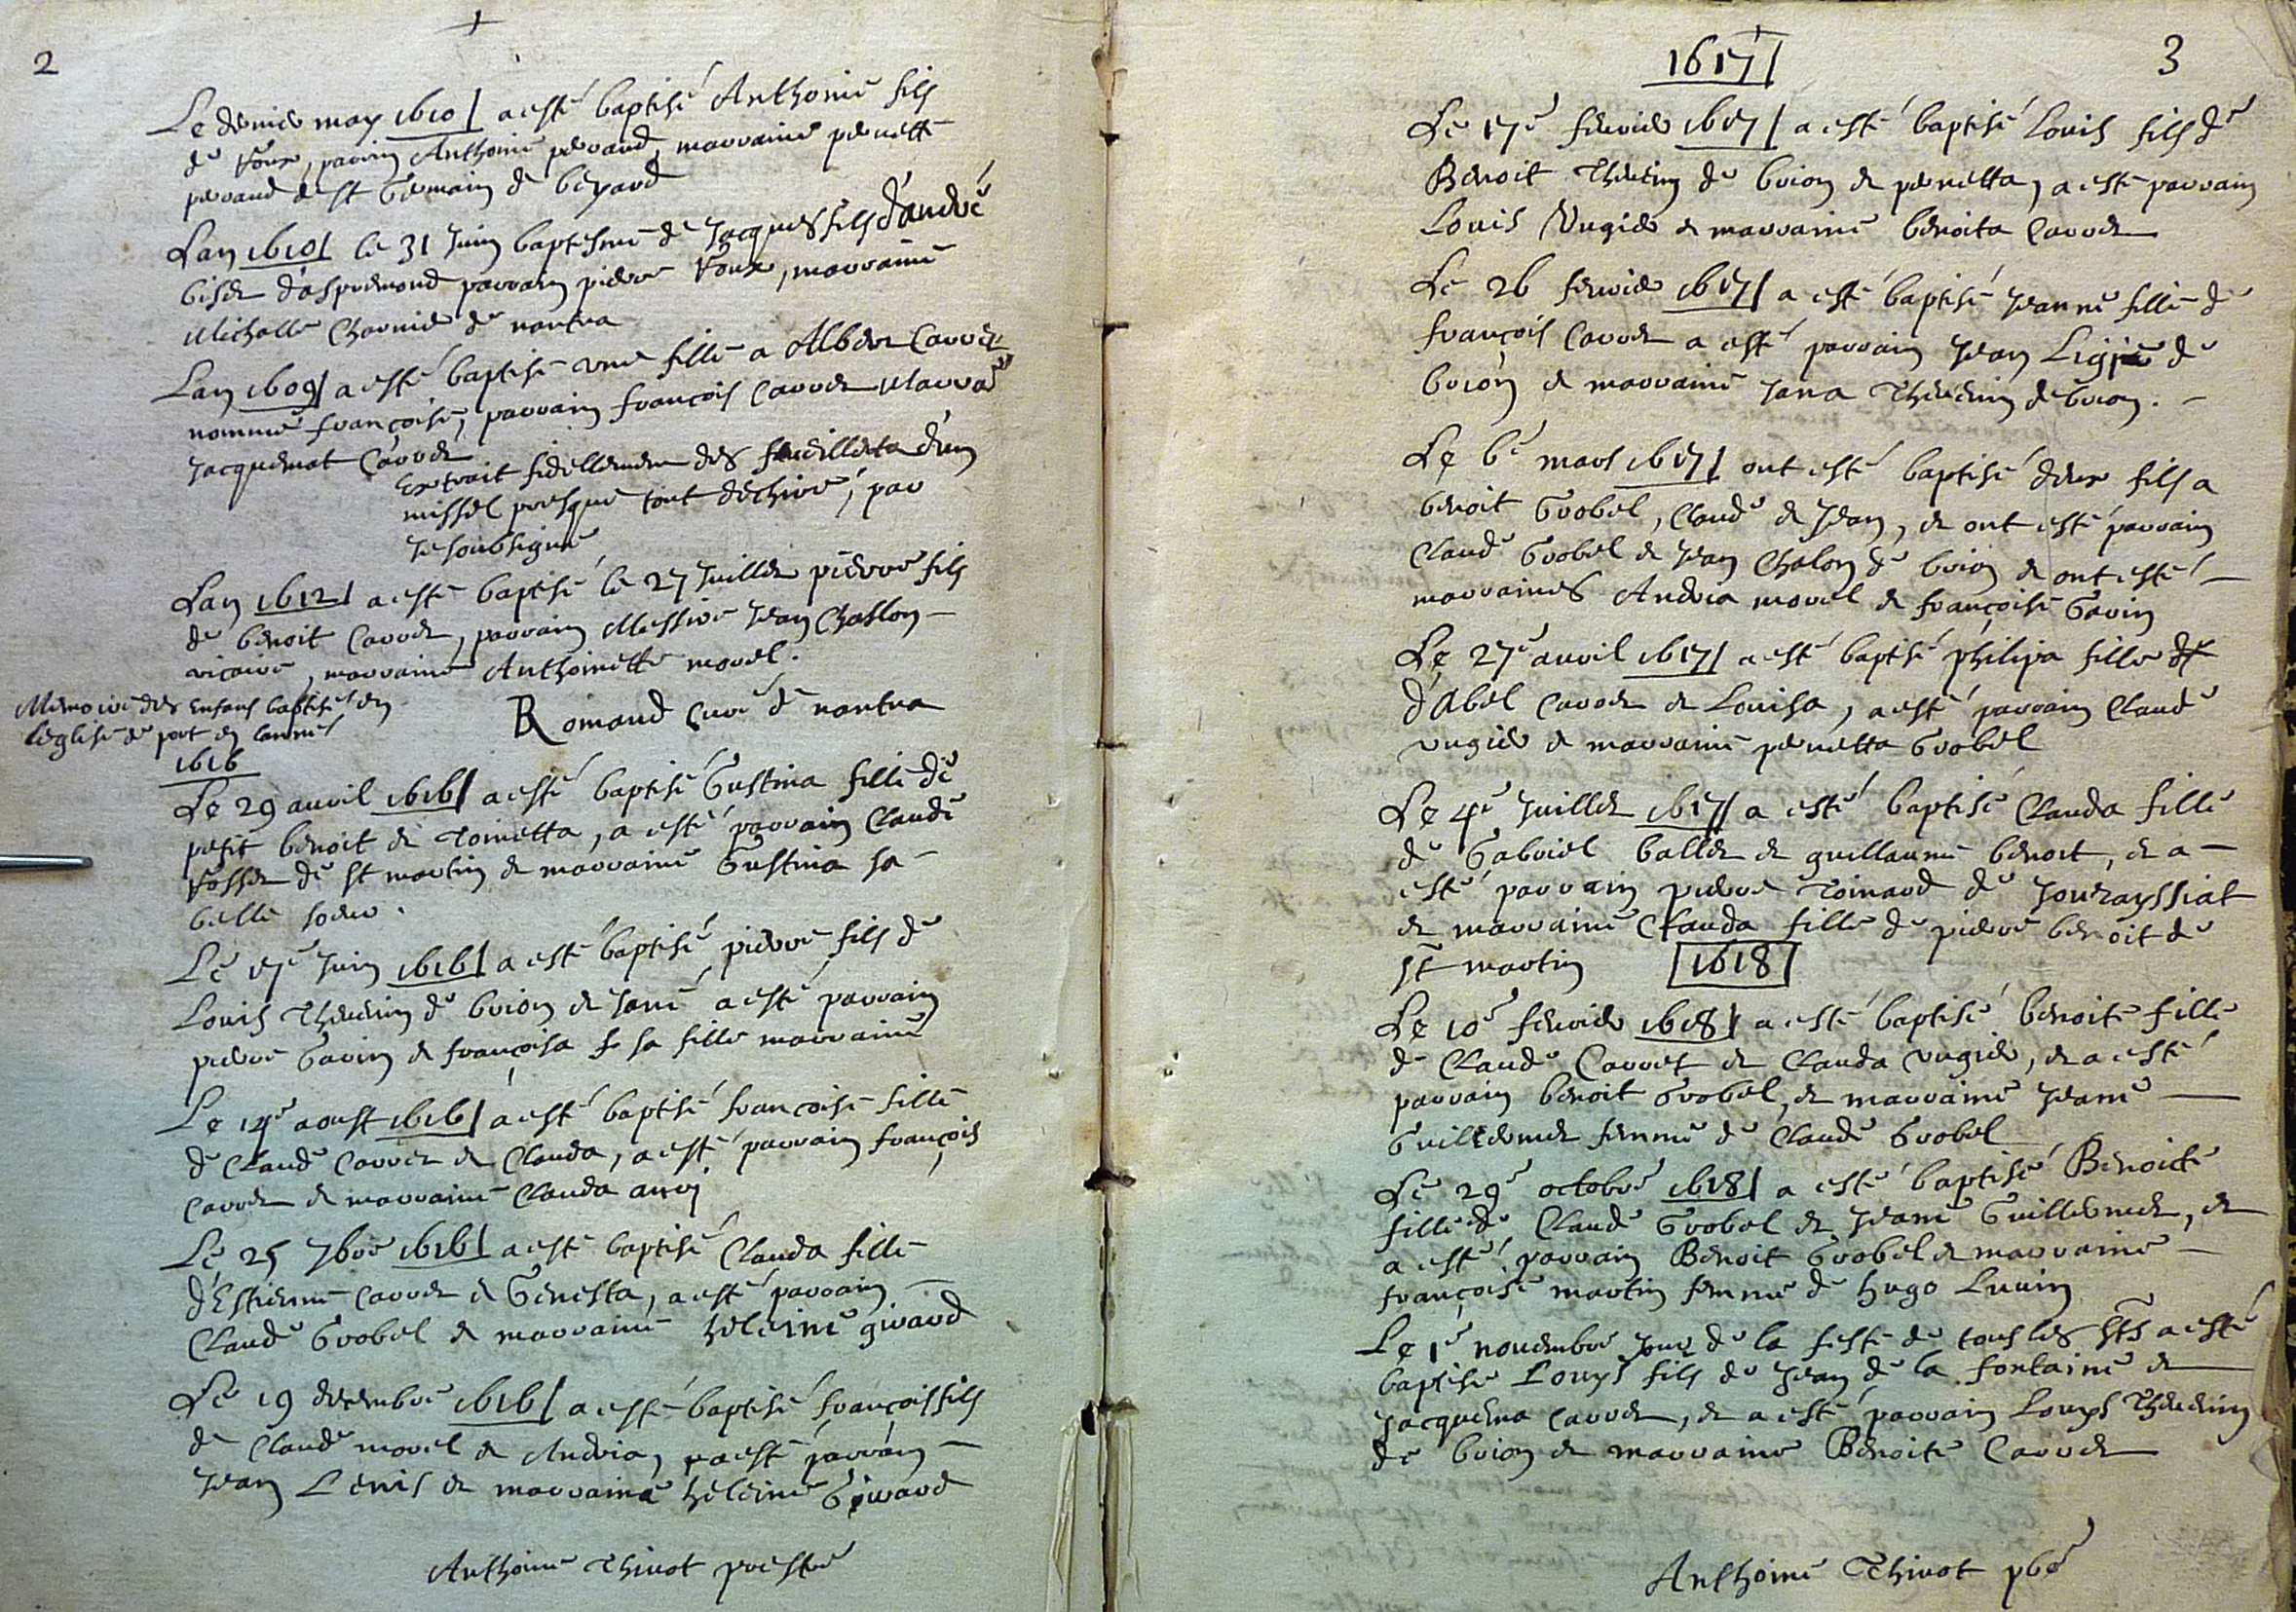 2
Le dernier may 1610 a esté baptisé Anthoine fils
de Roux, parrin Anthoine perraud, marraine pernette
perraud de st Germain de beyard
Lan 1610 le 31 Juin baptesme de Jacques fils d'andré
biset d'aspremond parrain pierre Roux, marraine
Michalle Charnier de nantua
Lan 1609 a esté baptisé une fille a Albert Carret
nommé françoise, parrain françois Carret Marra
Jacquemat Carret
Extrait fidellement des feuilleta d'un
missel presque tout déchiré, par
Je soubsigné
Lan 1612 a esté baptisé le 27 Juillet pierre fils
de benoit Carret, parrain Messire Jean Chaslon
vicaire, marraine Anthoinette morel.
Romand Curé de nantua
Memoire des Enfans baptisé en
leglise de port en lannee
1616
Le 29 auril 1616 a esté baptisé Gustina fille de
petit benoit et Toinetta, a esté parrain Claude
Rosset de st martin et marraine Gustina sa
belle soeur.
Le 17e Juin 1616 a esté baptisé pierre fils de
Louis Theuenin de brion et Jane a esté parrain
pierre Gavin et françoisa sa fille marraine
Le 14e aoust 1616 a esté baptisé françoise fille
de Claude Carret et Clauda, a esté parrain françois
Carret et marraine Clauda
Le 25 7bre 1616 a esté baptisé Clauda fille
d'Estienne Carret et Genesta, a esté parrain
Claude Grobel et marraine heleine girard
Le 19 decembre 1616 a esté baptisé françois fils
de Claude morel et Andria, a esté parrain
Jean Lenis et marraine heleine Girard
Anthoine Thiuot prestre
1617
3
Le 17e feurier 1617 a esté baptisé Louis fils de
Benoit Theuenin de brion et pernetta, a esté parrain
Louis Vugier et marraine benoita Carret
Le 26 feurier 1617 a esté baptisé Jeanne fille de
françois Carret a esté parrain Jean de
brion et marraine Jana Theuenin de brion.
Le 6e mars 1617 ont esté baptisé deux fils a
benoit Grobel, Claude et Jean, et ont esté parrain
Claude Grobel et Jean Chalon de brion et ont esté
marraines Andria morel et françoise Gavin
Le 27e auril 1617 a esté baptisé philipa fille
d'Abel Carret et Louisa, a esté parrain Claude
vugier et marraine pernetta Grobel
Le 4e Juillet 1617 a esté baptisé Clauda fille
de Gabriel ballet et guillaume benoit, et a
esté parrain pierre Toinard de Jourayssiat
et marraine Clauda fille de pierre benoit de
st martin
1618
Le 10e feurier 1618 a esté baptisé benoite fille
de Claude Carret et Clauda vugier, et a esté
parrain benoit Grobel, et marraine Jeane
Guillermet femme de Claude Grobel
Le 29e octobre 1618 a esté baptisé Benoite
fille de Claude Grobel et Jeane Guillermet, et
a esté parrain Benoit Grobel et marraine
françoise martin femme de hugo Luuin
Le 1e nouembre Jour de la feste de tous les sts a esté
baptisé Louys fils de Jean de la fontaine et
Jacquema Carret, et a esté parrain Louys Theuenin
de brion et marraine Benoite Carret
Anthoine Thiuot pbre